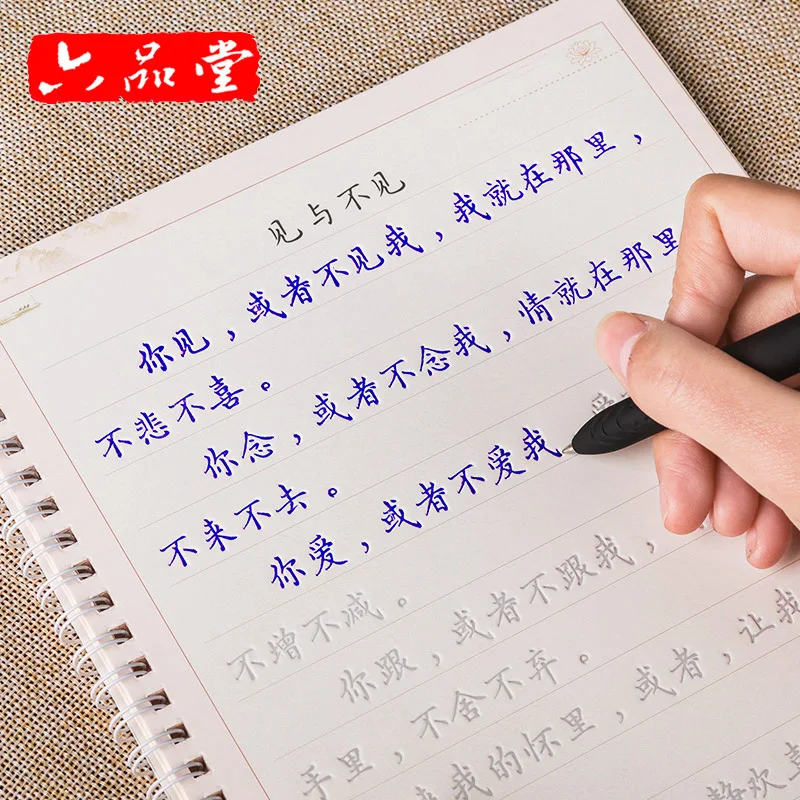 六品堂
见与不见
你见，或者不见我，我就在那里，
不悲不喜。
你念，或者不念我，情就在那里
不来不去。
你爱，或者不爱我
不增不减。
你跟，或者不跟我，
不舍不弃。
手里，
或者，让我
我的怀里，
欢喜